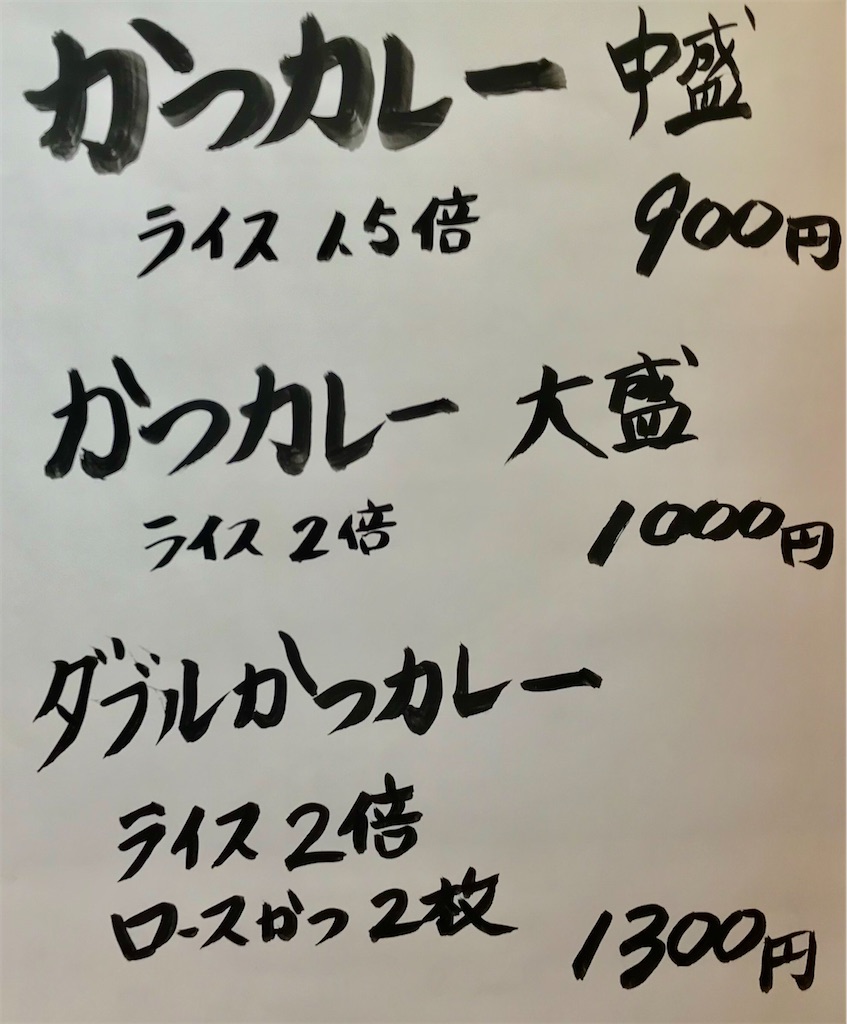 かつカレー 中盛
ライス 1.5倍 900円
かつカレー 大盛
ライス 2倍 1000円
ダブルかつカレー
ライス 2倍
ロースかつ 2枚 1300円